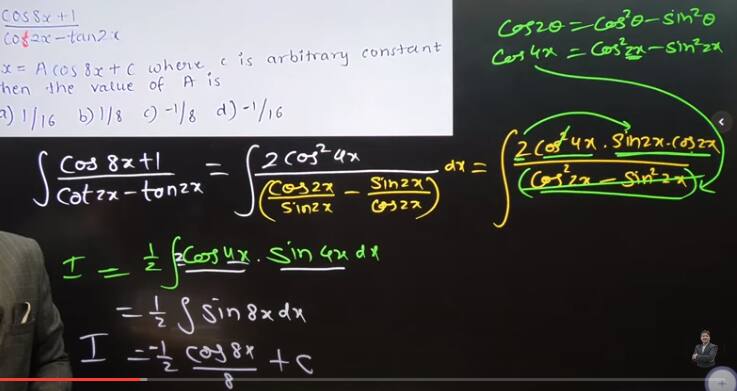 cos8x+1
cot2x-tan2x
x = A cos 8x + C where c is arbitrary constant
hen the value of A is
a) 1/16 b) 1/8 c) -1/8 d) -1/16
Cos2θ = Cos²θ - sin²θ
Cos 4x = Cos²2x - Sin²2x
∫ Cos 8x+1 / Cot 2x - tan2x = ∫ 2 Cos² 4x / (Cos2x / Sin2x - Sin2x / Cos2x) dx = ∫ 2 Cos² 4x . Sin2x . Cos2x / (Cos²2x - Sin²2x)
I = 1/2 ∫ 2 Cos 4x . Sin 4x dx
= 1/2 ∫ Sin 8x dx
I = -1/2 Cos 8x / 8 + C